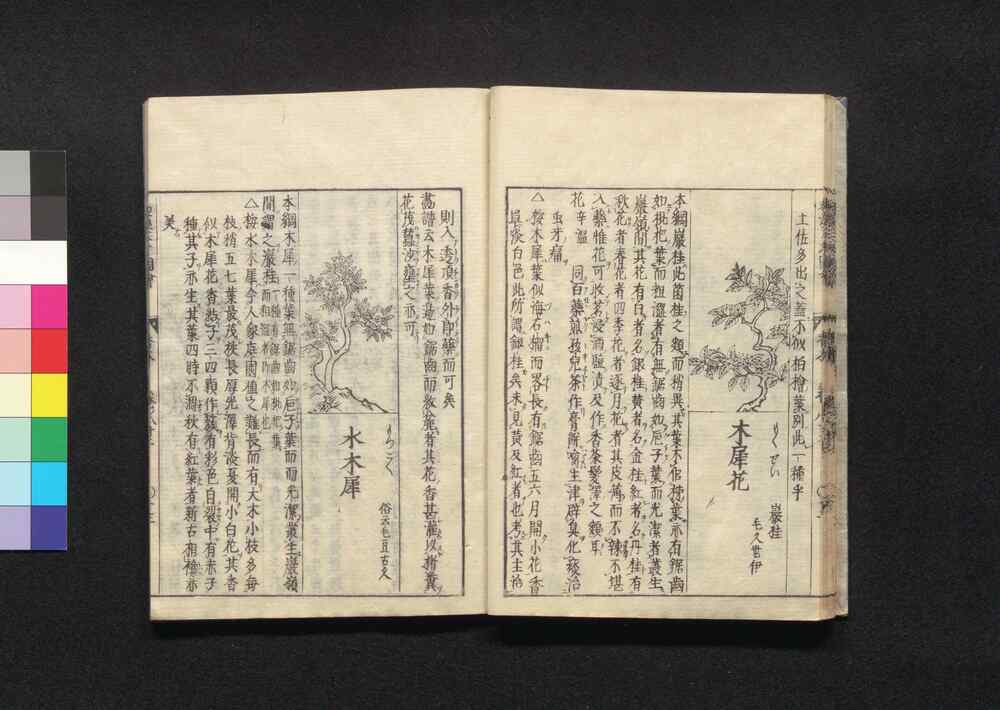 土佐多出之蓋不似柏檜葉別此一種乎
木犀花
もくせい
巖桂
毛久世伊
本綱巖桂此菌桂之類而稍異其葉不似柿葉亦有鋸齒
如枇杷葉而粗澀者有無鋸齒如巵子葉而光潔者叢生
巖嶺間其花有白者名銀桂黄者名金桂紅者名丹桂有
秋花者春花者四季花者逐月花者其皮薄而不辣不堪
入藥惟花可收茗浸酒鹽漬及作香茶髮澤之類耳
花辛溫 同百藥煎孩兒茶作膏餅噙生津辟臭化痰治
虫牙痛
△按木犀葉似海石榴而畧長有鋸齒五六月開小花香
淡白色此所謂銀桂矣未見黄及紅者也考其主治
則入
香外印藥而可矣
花譜云木犀葉邊如鋸齒而
者其花香甚灌以猪糞
花茂
沙壅之亦可
水木犀
もつこく
俗云毛豆古久
本綱木犀一種葉無鋸齒如巵子葉而光潔叢生巖嶺
間謂之巖桂
△按水木犀今人家庭園植之難長而有大木小枝多每
枝梢五七葉最茂狹長厚光澤背淡夏開小白花其香
似木犀花香結子三四顆作簇有彩色自裂中有赤子
種其子亦生其葉四時不凋秋有紅葉者新古相襍亦
美